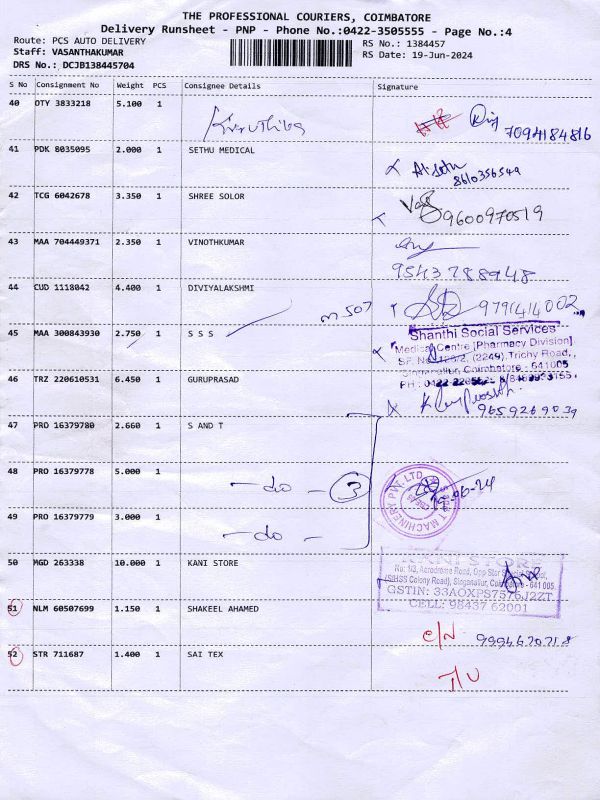 THE PROFESSIONAL COURIERS, COIMBATORE
Delivery Runsheet - PNP - Phone No.:0422-3505555 - Page No.:4
Route: PCS AUTO DELIVERY
RS No.: 1384457
Staff: VASANTHAKUMAR
RS Date: 19-Jun-2024
DRS No.: DCJB138445704
S No Consignment No Weight PCS Consignee Details Signature
40 OTY 3833218 5.100 1
7094184816
41 PDK 8035095 2.000 1 SETHU MEDICAL
8610356549
42 TCG 6042678 3.350 1 SHREE SOLOR
9600970519
43 MAA 704449371 2.350 1 VINOTHKUMAR
9543788948
44 CUD 1118042 4.400 1 DIVIYALAKSHMI
m 507
9791414002
45 MAA 300843930 2.750 1 S S S
Shanthi Social Services
Medical Centre [Pharmacy Division]
(2249), Trichy Road,
Singanallur, Coimbatore - 641005
46 TRZ 220610531 6.450 1 GURUPRASAD
9659269039
47 PRO 16379780 2.660 1 S AND T
48 PRO 16379778 5.000 1
- do - 3
MACHINERY PVT. LTD
19-06-24
49 PRO 16379779 3.000 1
- do -
50 MGD 263338 10.000 1 KANI STORE
KANI STORE
No: 1/3, Aerodrome Road,
(SIHSS Colony Road), Singanallur, Coimbatore - 641 005
GSTIN: 33AOXPS7576J2ZT
CELL: 98437 62001
51 NLM 60507699 1.150 1 SHAKEEL AHAMED
C/N 9994670718
52 STR 711687 1.400 1 SAI TEX
T/U